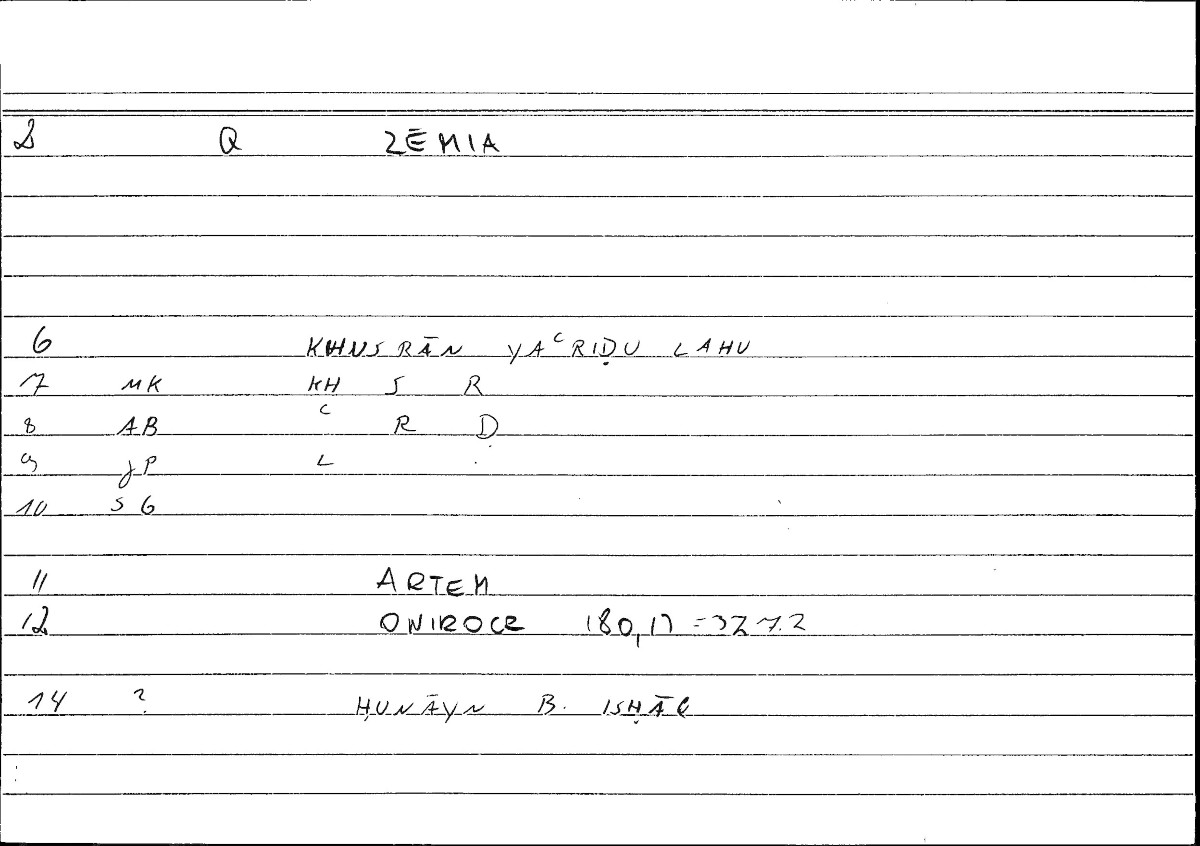 2 Q ZĒMIA
6 KHUSRĀN YAʿRIḌU LAHU
7 MK KH S R
8 AB ʿ R Ḍ
9 JP L
10 SG
11 ARTEM
12 ONIROCR 180,17 = 327.2
14 ? ḤUNĀYN B. ISḤĀQ